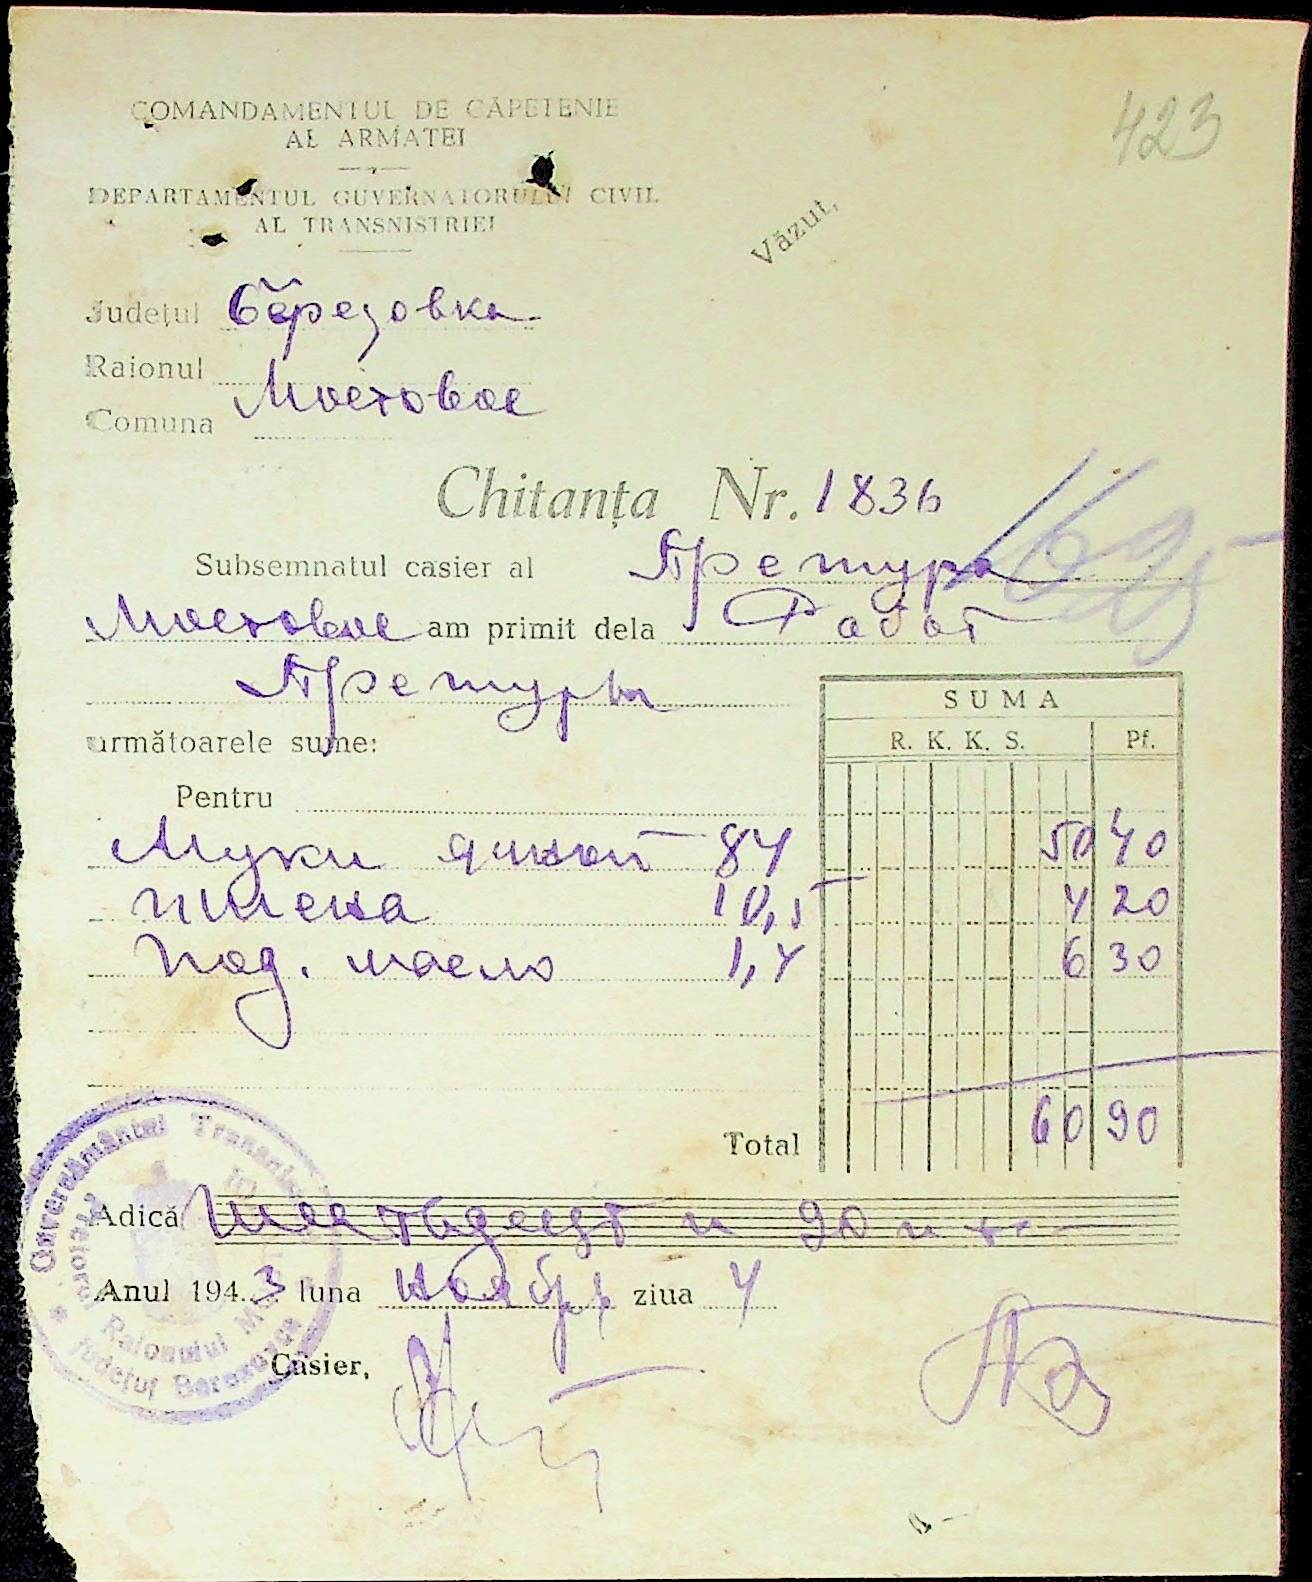 423
COMANDAMENTUL DE CĂPETENIE
AL ARMATEI
DEPARTAMENTUL GUVERNATORULUI CIVIL
AL TRANSNISTRIEI
Văzut,
Județul Березовка
Raionul
Мостовое
Comuna
Chitanța Nr. 1836
Subsemnatul casier al Претура
Мостовое am primit dela Работ
Претуры
următoarele sume:
SUMA
R. K. K. S. Pf.
Pentru
Муки 84 50 40
пшена 10,5 4 20
Под. масло 1,4 6 30
Total 60 90
Adică Шестьдесят и 90 п
Anul 1943 luna ноябрь ziua 4
Casier,
Guvernământul Transnistriei
Pretorul Raionului
Județul Berezovca